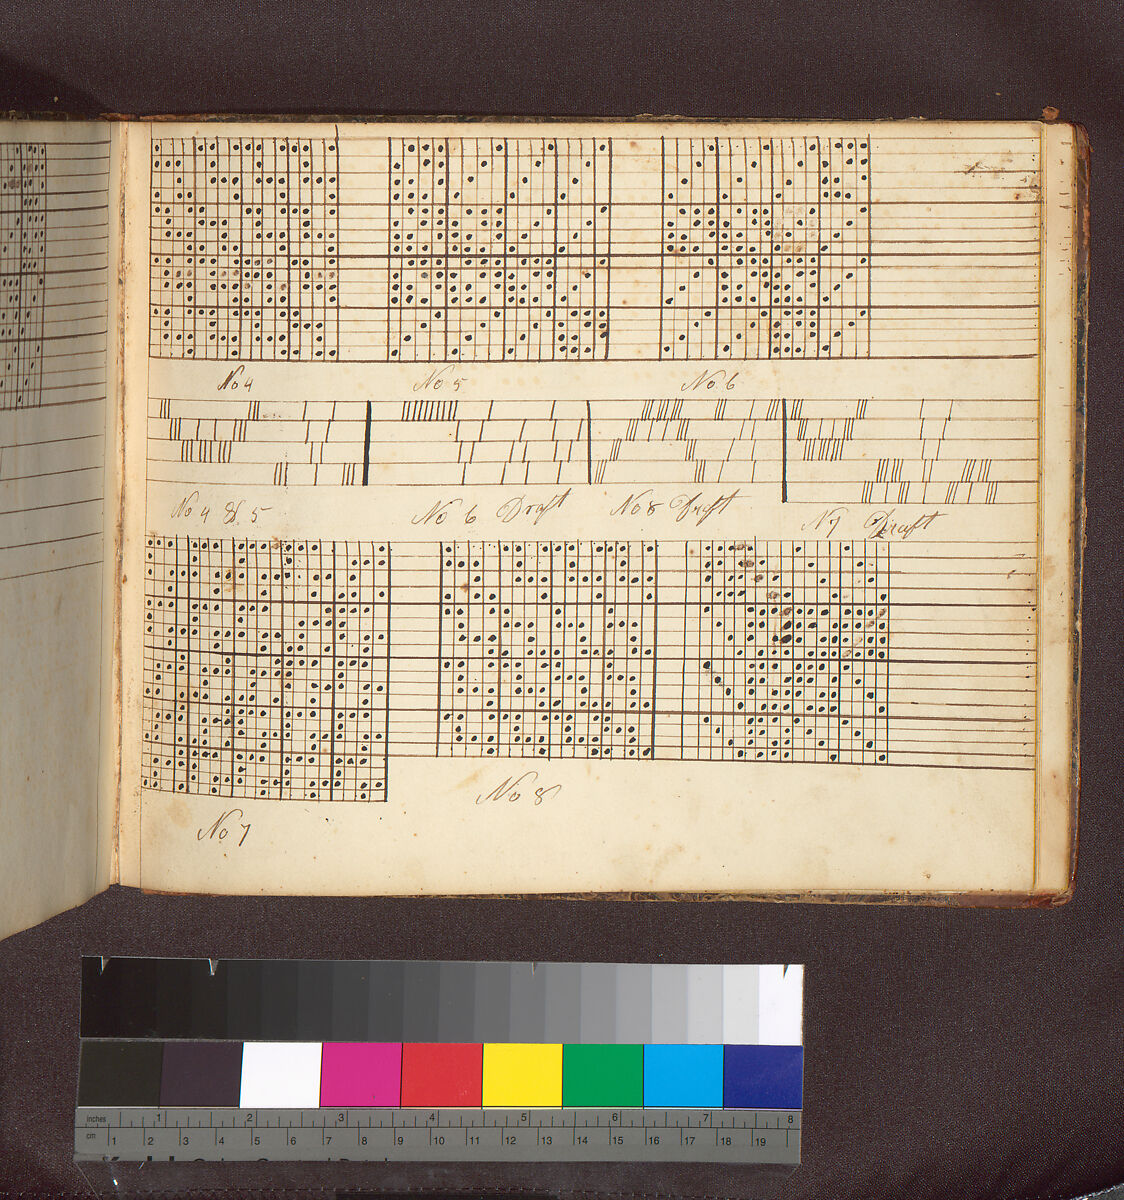 No 4 No 5 No. 6
No 4 & 5 No 6 Draft No 8 Draft N 7 Draft
No 8
No 7
inches 1 2 3 4 5 6 7 8
cm 1 2 3 4 5 6 7 8 9 10 11 12 13 14 15 16 17 18 19